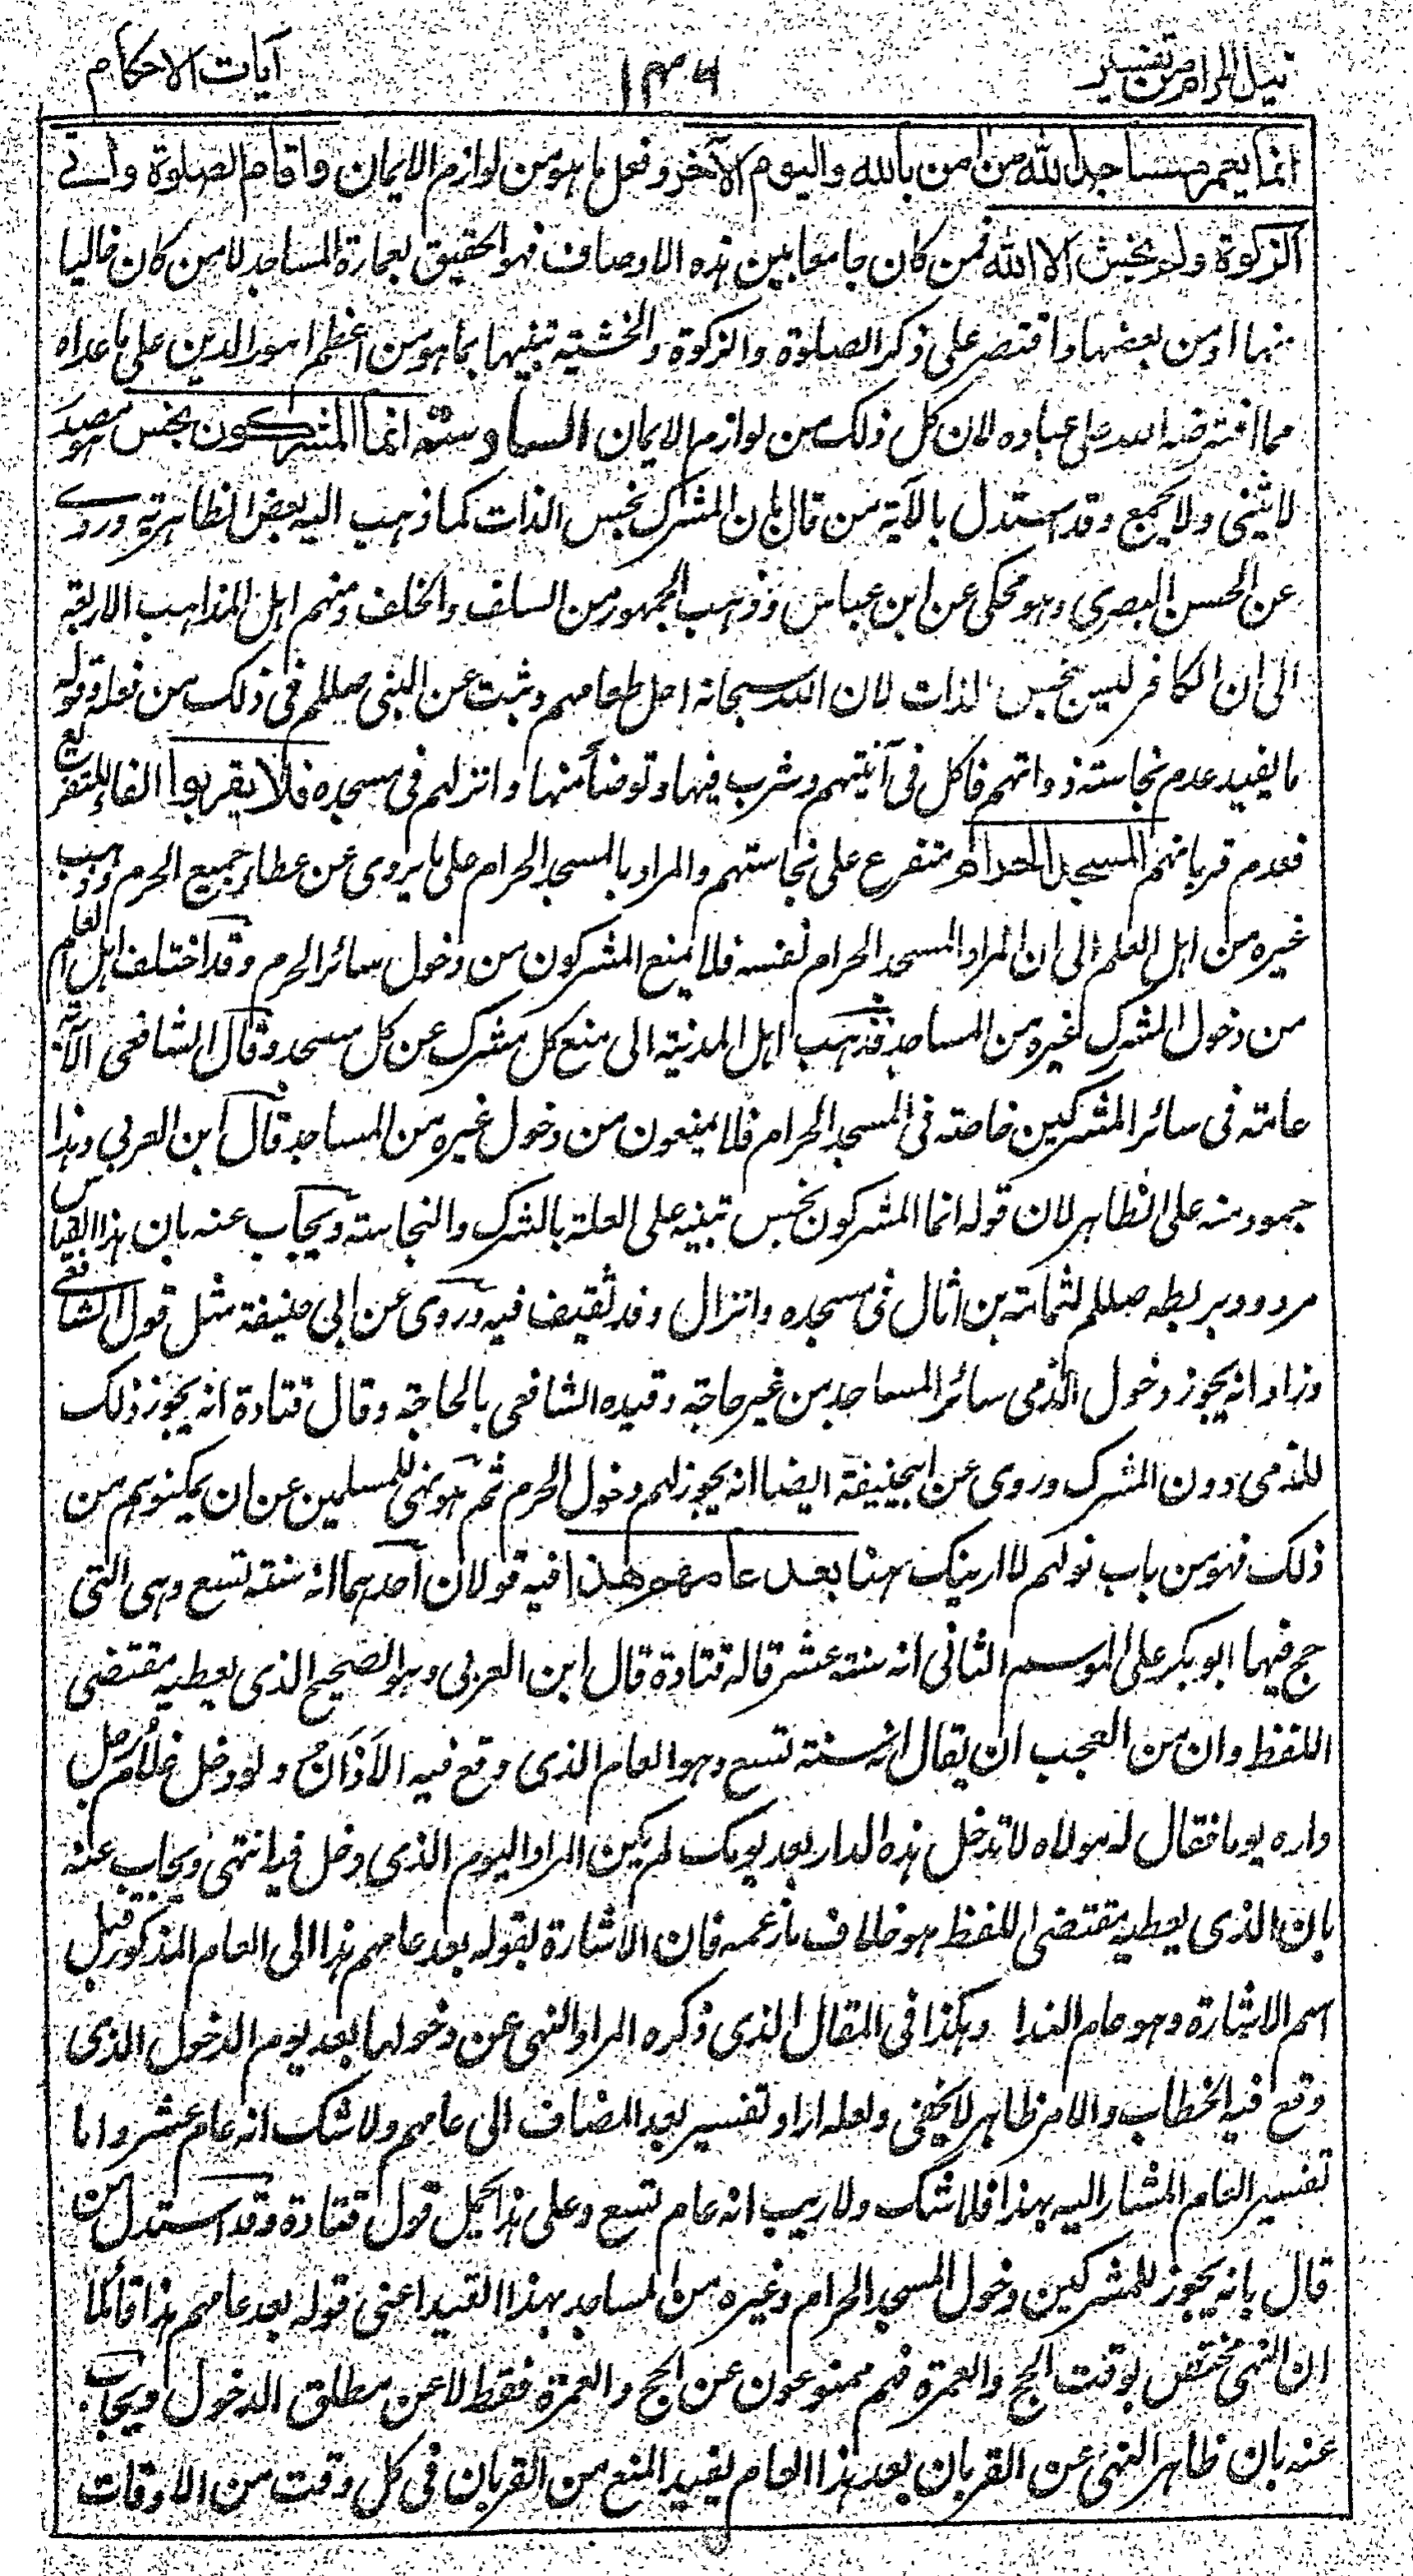 نيل المرام من تفسير ١٤٦ آيات الاحكام
انما يعمر مساجد الله من امن بالله واليوم الآخر وفعل ما هو من لوازم الايمان واقام الصلوة وأتى
الزكوة ولم يخش الا الله فمن كان جامعا بين هذه الاوصاف فهو الحقيق بعمارة المساجد لا من كان خاليا
منها او من بعضها واقتصر على ذكر الصلوة والزكوة والخشية تنبيها بما هو من اعظم امور الدين على ما عداه
مما افترضه الله على عباده لان كل ذلك من لوازم الايمان السادسة انما المشركون نجس هو مصدر
لا يثنى ولا يجمع وقد استدل بالآية من قال بان المشرك نجس الذات كما ذهب اليه بعض الظاهرية وروى
عن الحسن البصري وهو محكى عن ابن عباس وذهب الجمهور من السلف والخلف ومنهم اهل المذاهب الاربعة
الى ان الكافر ليس نجس الذات لان الله سبحانه احل طعامهم وثبت عن النبى صللم فى ذلك من فعله وقوله
ما يفيد عدم نجاسة ذواتهم فاكل فى آنيتهم وشرب فيها وتوضأ منها وانزلهم فى مسجده فلا يقربوا الفاء للتفريع
فعدم قربانهم المسجد الحرام متفرع على نجاستهم والمراد بالمسجد الحرام على ما يروى عن عطاء جميع الحرم وذهب
غيره من اهل العلم الى ان المراد المسجد الحرام نفسه فلا يمنع المشركون من دخول سائر الحرم وقد اختلف اهل العلم
من دخول المشرك لغيره من المساجد فذهب اهل المدنية الى منع كل مشرك عن كل مسجد وقال الشافعى الآية
عامة فى سائر المشركين خاصة فى المسجد الحرام فلا يمنعون من دخول غيره من المساجد قال ابن العربي وهذا
جمود منه على الظاهر لان قوله انما المشركون نجس تنبيه على العلة بالشرك والنجاسة ويجاب عنه بان هذا القياس
مردود بربطه صللم لثمامة بن اثال فى مسجده وانزال وفد ثقيف فيه وروى عن ابى حنيفة مثل قول الشافعى
وزاد انه يجوز دخول الذمى سائر المساجد من غير حاجة وقيده الشافعى بالحاجة وقال قتادة انه يجوز ذلك
للذمى دون المشرك وروى عن ابيحنيفة ايضا انه يجوز لهم دخول الحرم ثم هو نهى للمسلمين عن ان يمكنوهم من
ذلك فهو من باب قولهم لا ارينك ههنا بعد عامهم هذا فيه قولان احدهما انه سنة تسع وهى التى
حج فيها ابو بكر على الموسم الثانى انه سنة عشر قاله قتادة قال ابن العربى وهو الصحيح الذى يعطيه مقتضى
اللفظ وان من العجب ان يقال انه سنة تسع وهو العام الذى وقع فيه الاَذَانُ ولو دخل غلام رجل
داره يوما فقال له مولاه لا تدخل هذه الدار بعد يومك لم يكن المراد اليوم الذى دخل فيه انتهى ويجاب عنه
بان الذى يعطيه مقتضى اللفظ هو خلاف ما زعمه فان الاشارة بقوله بعد عامهم هذا الى العام المذكور قبل
اسم الاشارة وهو عام الندا وهكذا فى المقال الذى ذكره المراد النهى عن دخولها بعد يوم الدخول الذى
وقع فيه الخطاب والامر ظاهر لا يخفى ولعله اراد تفسير بعد المضاف الى عامهم ولا شك انه عام عشر واما
تفسير العام المشار اليه بهذا فلا شك ولا ريب انه عام تسع وعلى هذا يحمل قول قتادة وقد استدل من
قال بانه يجوز للمشركين دخول المسجد الحرام وغيره من المساجد بهذا القيد اعنى قوله بعد عامهم هذا قائلا
ان النهى مختص بوقت الحج والعمرة فهم ممنوعون عن الحج والعمرة فقط لا عن مطلق الدخول ويجاب
عنه بان ظاهر النهى عن القربان بعد هذا العام يفيد المنع من القربان فى كل وقت من الاوقات